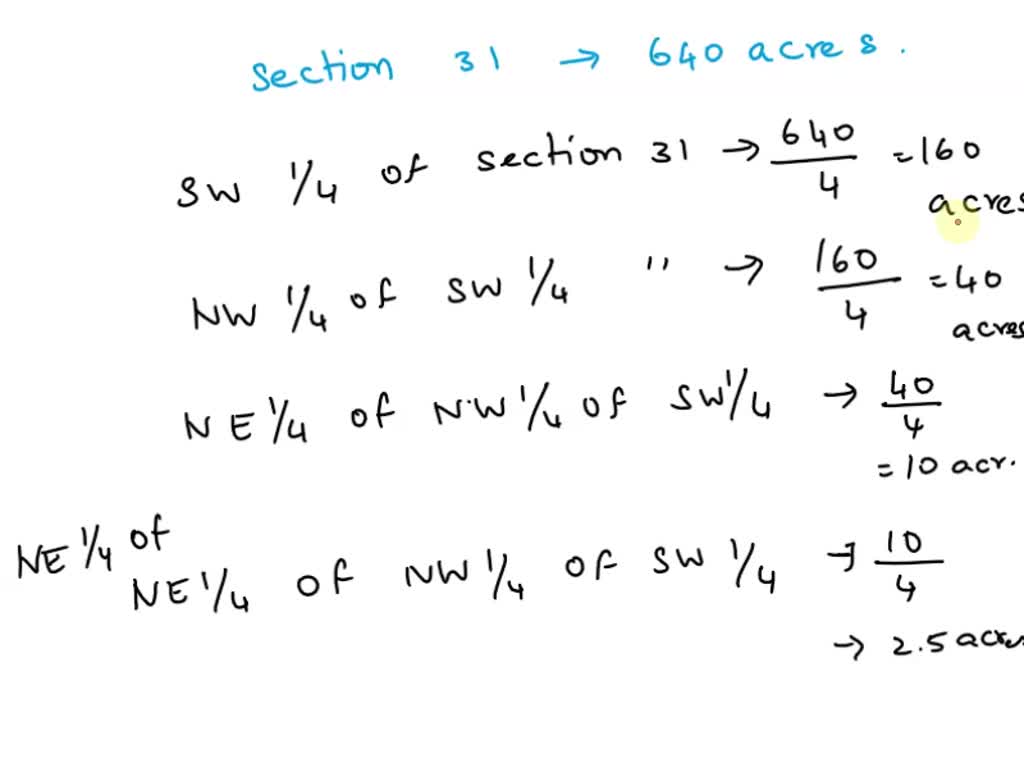 section 31 → 640 acres.
SW 1/4 of section 31 → 640/4 = 160 acres
NW 1/4 of SW 1/4 " → 160/4 = 40 acres
NE 1/4 of N.W 1/4 of SW 1/4 → 40/4
= 10 acr.
NE 1/4 of
NE 1/4 of NW 1/4 of SW 1/4 → 10/4
→ 2.5 acres